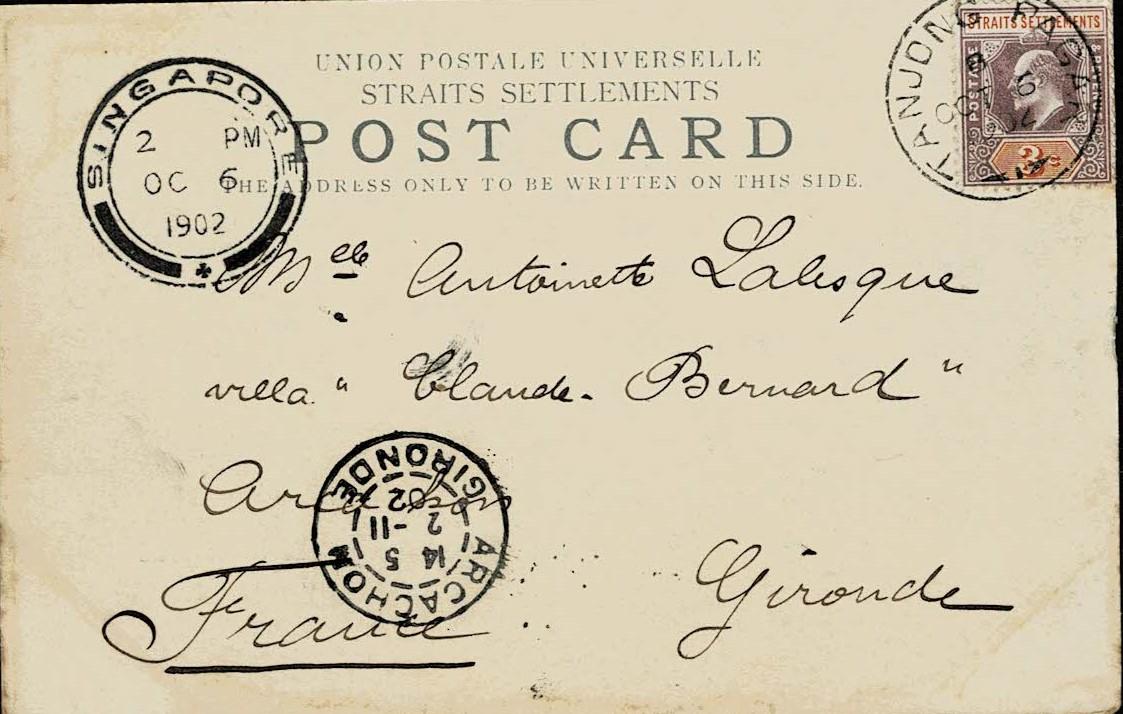 UNION POSTALE UNIVERSELLE
STRAITS SETTLEMENTS
POST CARD
THE ADDRESS ONLY TO BE WRITTEN ON THIS SIDE.
SINGAPORE
2 PM
OC 6
1902
TANJONG PAGAR
OCT 6
STRAITS SETTLEMENTS
POSTAGE
3c
Mlle Antoinette Lalesque
villa " Claude-Bernard "
Arcachon
Gironde
France
ARCACHON
14 5
2 -11
02
GIRONDE